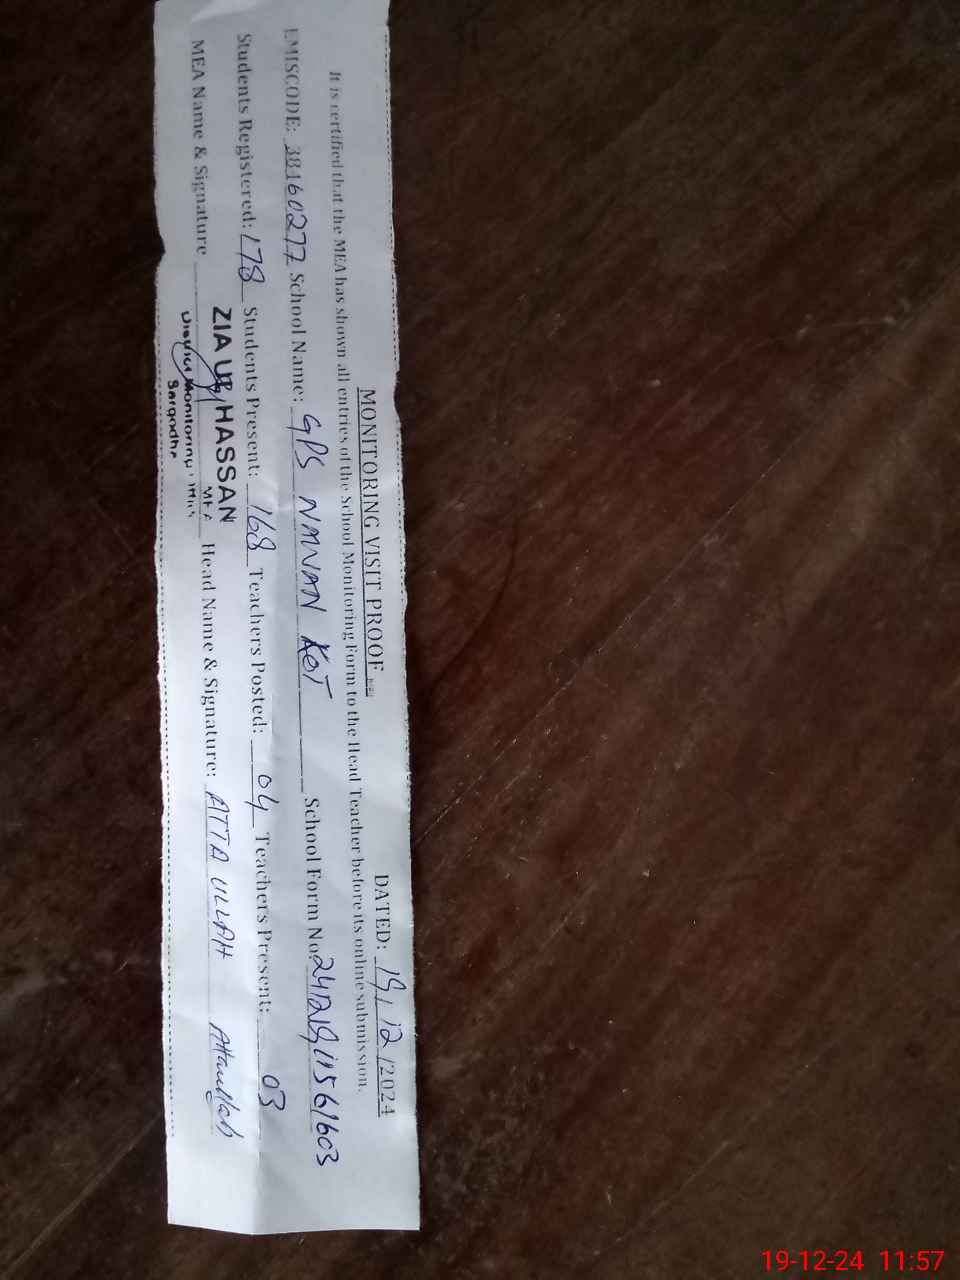 MONITORING VISIT PROOF
DATED: 19/12/2024
It is certified that the MEA has shown all entries of the School Monitoring Form to the Head Teacher before its online submission.
EMISCODE: 38460277 School Name: GPS NAWAN KOT School Form No:
Students Registered: 178 Students Present: 168 Teachers Posted: 04 Teachers Present: 03
MEA Name & Signature Head Name & Signature: ATTA ULLAH Attaullah
ZIA UL HASSAN
MEA
District Monitoring Office
Sargodha
19-12-24 11:57